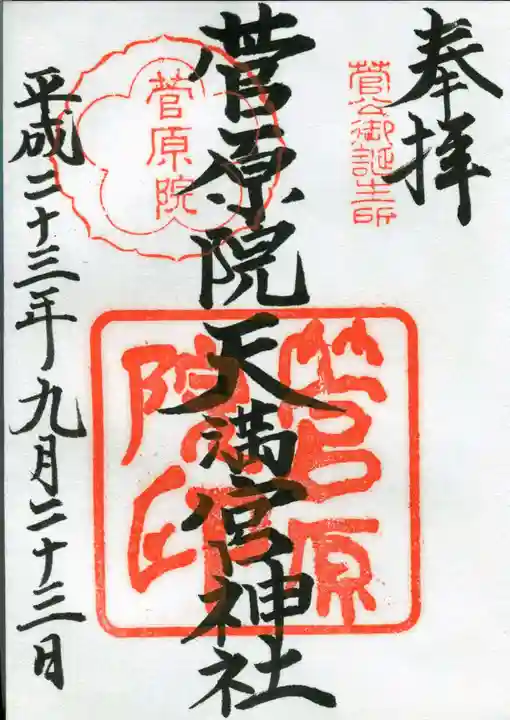 奉拝
菅公御誕生所
菅原院天満宮神社
菅原院
菅原
院印
平成二十三年九月二十三日